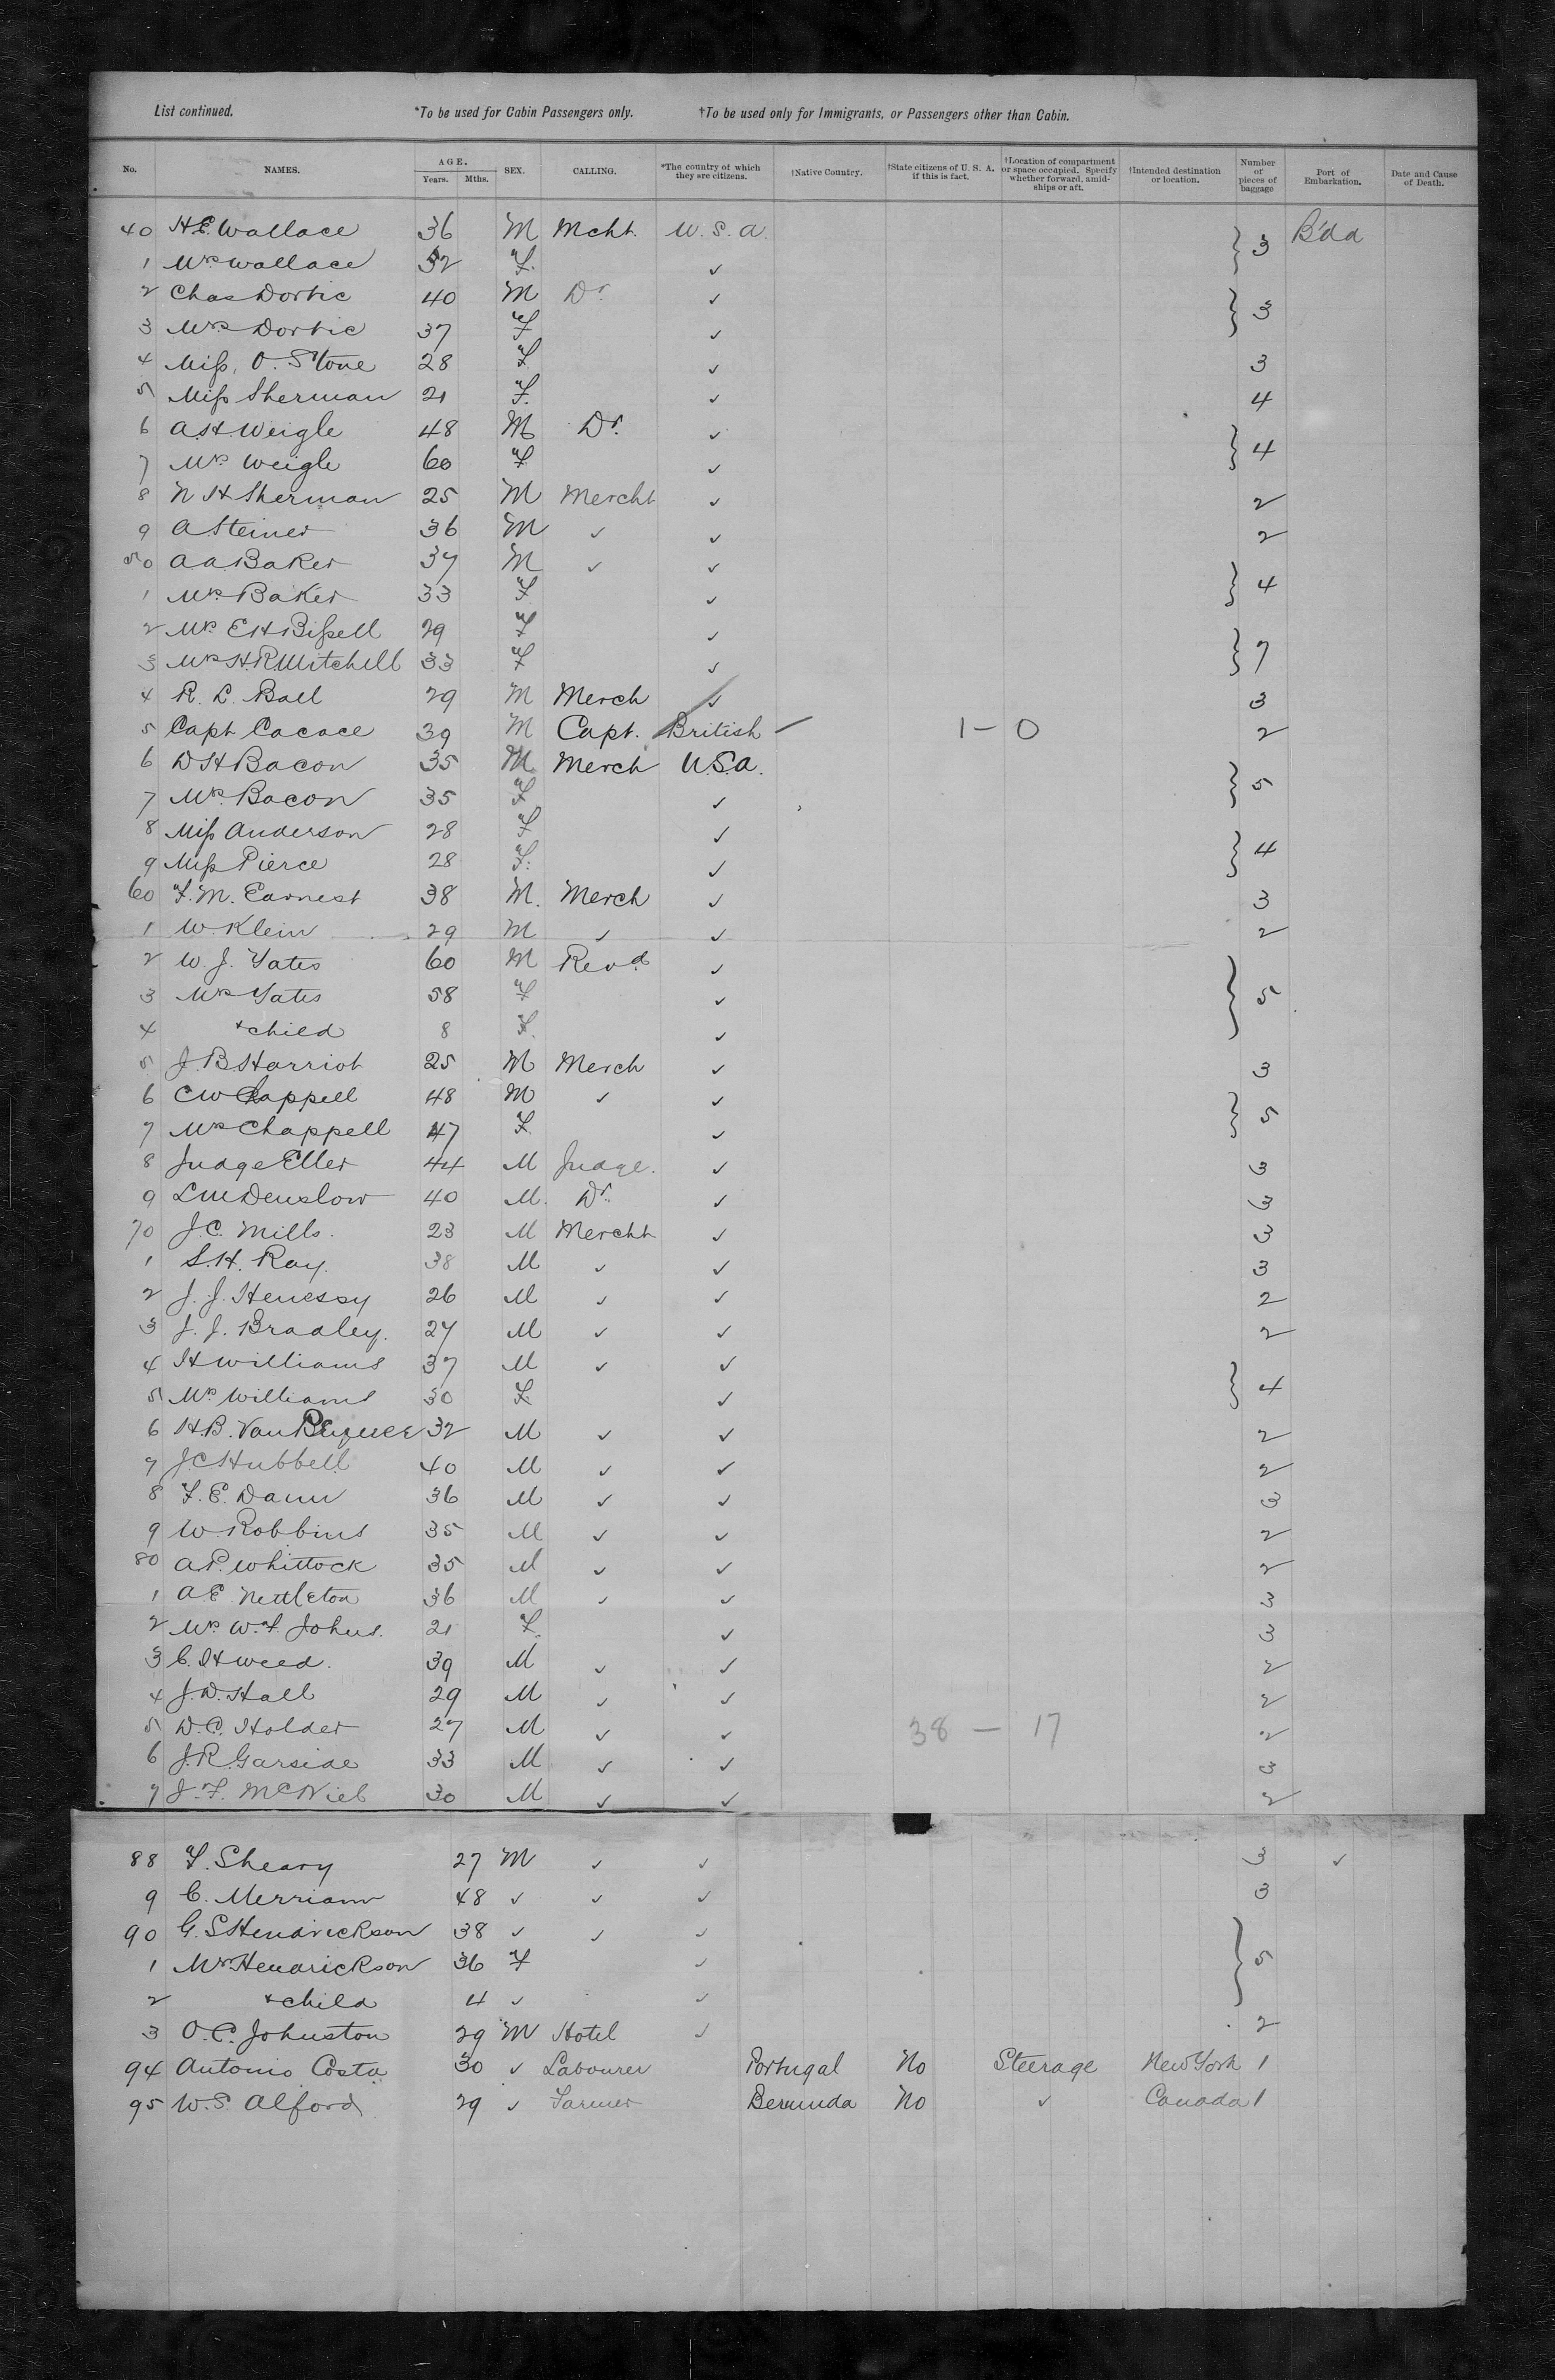 List continued. *To be used for Cabin Passengers only. †To be used only for Immigrants, or Passengers other than Cabin.
No. NAMES. AGE. Years. Mths. SEX. CALLING. *The country of which they are citizens. †Native Country. †State citizens of U. S. A. if this is fact. †Location of compartment or space occupied. Specify whether forward, amidships or aft. †Intended destination or location. Number of pieces of baggage Port of Embarkation. Date and Cause of Death.
40 H E. Wallace 36 M Mcht. U.S.A. } 3 B'da
1 Mrs Wallace F. ✓
2 Chas Dortic 40 M Dr ✓ } 3
3 Mrs Dortic 37 F ✓
4 Miss, O. Stone 28 F ✓ 3
5 Miss Sherman 21 F. ✓ 4
6 A.H. Weigle 48 M Dr. ✓ } 4
7 Mrs Weigle 60 F ✓
8 N H Sherman 25 M Mercht ✓ 2
9 A Steiner 36 M ✓ ✓ 2
50 A A Baker 37 M ✓ ✓ } 4
1 Mrs Baker 33 F ✓
2 Mrs E H Bissell 29 F ✓ } 7
3 Mrs H.R Mitchell 33 F ✓
4 R. L. Ball 29 M Merch ✓ 3
5 Capt Cacace 39 M Capt. British 1 - 0 2
6 D H Bacon 35 M Merch U.S.A. } 5
7 Mrs. Bacon 35 F ✓
8 Miss Anderson 28 F ✓ } 4
9 Miss Pierce 28 F. ✓
60 F. M. Earnest 38 M. Merch ✓ 3
1 W. Klein 29 M ✓ ✓ 2
2 W. J. Yates 60 M Revd ✓ } 5
3 Mrs Yates 58 F ✓
4 + child 8 F. ✓
5 J. B Harriot 25 M Merch ✓ 3
6 C W Chappell 48 M ✓ ✓ } 5
7 Mrs Chappell 47 F ✓
8 Judge Eller 44 M Judge. ✓ 3
9 L M Denslow 40 M. Dr. ✓ 3
70 J. C. Mills. 23 M Mercht ✓ 3
1 S. H. Ray. 38 M ✓ ✓ 3
2 J. J. Henessy 26 M ✓ ✓ 2
3 J. J. Bradley. 27 M ✓ ✓ 2
4 H Williams 37 M ✓ ✓ } 4
5 Mrs Williams 30 F. ✓
6 H.B. Van 32 M ✓ ✓ 2
7 J C Hubbell 40 M ✓ ✓ 2
8 F. E. Dann 36 M ✓ ✓ 3
9 W. Robbins 35 M ✓ ✓ 2
80 A.P. Whittock 35 M ✓ ✓ 2
1 A E Nettleton 36 M ✓ ✓ 3
2 Mrs W. F. Johns. 21 F. ✓ 3
3 C. H Weed. 39 M ✓ ✓ 2
4 J. D. Hall 29 M ✓ ✓ 2
5 D. C. Holder 27 M ✓ ✓ 38 — 17 2
6 J. R. Garside 33 M ✓ ✓ 3
7 J. F. McNiel 30 M ✓ ✓ 2
88 F. Sheary 27 M ✓ ✓ 3 ✓
9 C. Merriam 48 ✓ ✓ ✓ 3
90 G. S Hendrickson 38 ✓ ✓ ✓ } 5
1 Mrs Hendrickson 36 F ✓
2 + child 4 ✓ ✓
3 O. C. Johnston 29 M Hotel ✓ 2
94 Antonio Costa 30 ✓ Labourer Portugal No Steerage New York 1
95 W. S. Alford 29 ✓ Farmer Bermuda No ✓ Canada 1